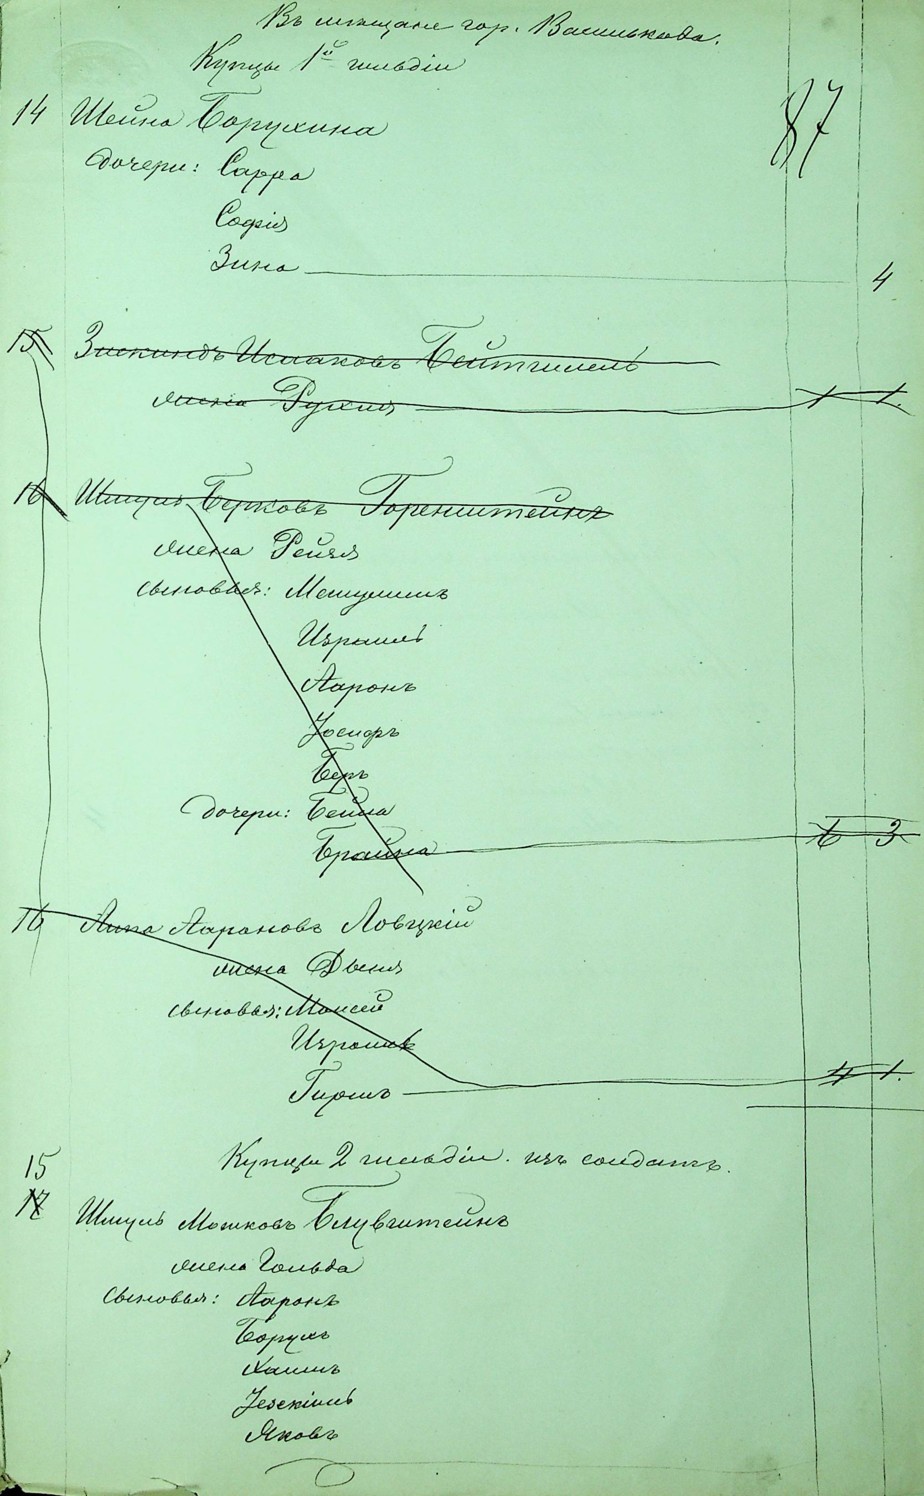 Въ мѣщане гор. Василькова.
Купцы 1й гильдіи
87
14 Шейна Борухина
дочери: Сарра
Софія
Зина 4
15 Зискиндъ Исаковъ Бейтгилель
жена Рухля 1 1.
16 Шмуль Берковъ Горенштейнъ
жена Рейзя
сыновья: Мешулимъ
Израиль
Ааронъ
Іосифъ
Беръ
дочери: Бейла
Брайна 6 3
16 Аароновъ Ловцкій
жена Двеня
сыновья: Моисей
Израиль
Гиршъ 4 1.
Купцы 2 гильдіи. изъ солдатъ.
15
17 Шмуль Мошковъ Блувштейнъ
жена Гольда
сыновья: Ааронъ
Борухъ
Хаимъ
Іезекіиль
Яковъ